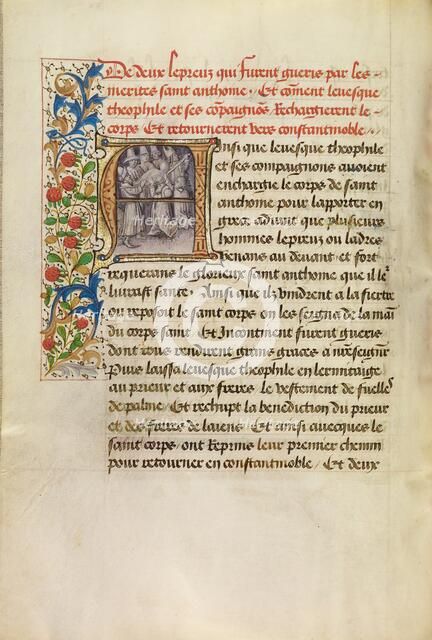 De deux lepreux qui furent gueris par les
merites saint anthoine / Et cõment leuesque
theophile et ses cõpaignõs Rechargierent le
corps Et retournerent vers constantinoble /
Ainsi que leuesque theophile
et ses compaignons auoient
enchargie le corps de saint
anthoine pour lapporter en
grece aduint que pluseurs
hommes lepreux ou ladres
venans au deuant et fort
requerans le glorieux saint anthoine que il leʳ
liurast sante / Ainsi que ilz vindrent a la fiertre
ou reposoit le saint corps on les seigna de la mai
du corps saint Et Incontinent furent gueris
dont ilz rendirent grans graces a nr̃eseignr̃
Puis laissa leuesque theophile en lermitaige
au prieur et aux freres le vestement de fuelleˢ
de palme / Et rechupt la benediction du prieur
et des freres de laiens / Et ainsi auecques le
saint corps / ont Reprins leur premier chemin
pour retourner en constantinoble / Et deux
Heritage